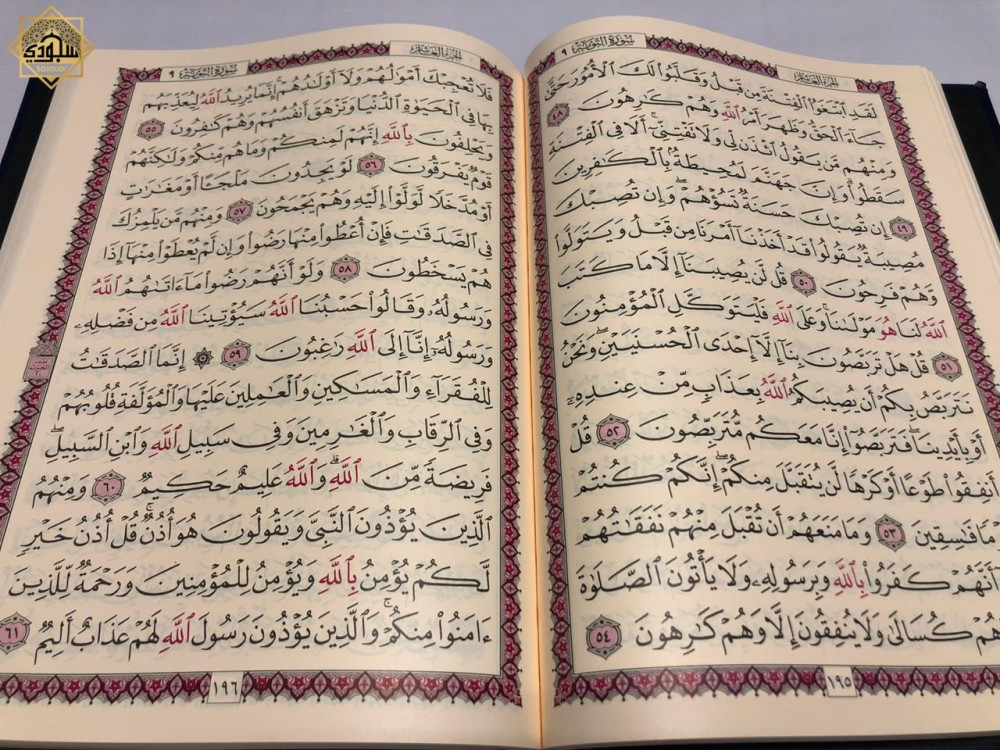 سجودي
SOJOUDI
سورة التوبة ٩
الجزء العاشر
لَقَدِ ٱبْتَغَوُا۟ ٱلْفِتْنَةَ مِن قَبْلُ وَقَلَّبُوا۟ لَكَ ٱلْأُمُورَ حَتَّىٰ
جَآءَ ٱلْحَقُّ وَظَهَرَ أَمْرُ ٱللَّهِ وَهُمْ كَـٰرِهُونَ ٤٨
وَمِنْهُم مَّن يَقُولُ ٱئْذَن لِّى وَلَا تَفْتِنِّىٓ ۚ أَلَا فِى ٱلْفِتْنَةِ
سَقَطُوا۟ ۗ وَإِنَّ جَهَنَّمَ لَمُحِيطَةٌۢ بِٱلْكَـٰفِرِينَ
٤٩ إِن تُصِبْكَ حَسَنَةٌ تَسُؤْهُمْ ۖ وَإِن تُصِبْكَ
مُصِيبَةٌ يَقُولُوا۟ قَدْ أَخَذْنَآ أَمْرَنَا مِن قَبْلُ وَيَتَوَلَّوا۟
وَّهُمْ فَرِحُونَ ٥٠ قُل لَّن يُصِيبَنَآ إِلَّا مَا كَتَبَ
ٱللَّهُ لَنَا هُوَ مَوْلَىٰنَا ۚ وَعَلَى ٱللَّهِ فَلْيَتَوَكَّلِ ٱلْمُؤْمِنُونَ
٥١ قُلْ هَلْ تَرَبَّصُونَ بِنَآ إِلَّآ إِحْدَى ٱلْحُسْنَيَيْنِ ۖ وَنَحْنُ
نَتَرَبَّصُ بِكُمْ أَن يُصِيبَكُمُ ٱللَّهُ بِعَذَابٍ مِّنْ عِندِهِۦٓ
أَوْ بِأَيْدِينَا ۖ فَتَرَبَّصُوٓا۟ إِنَّا مَعَكُم مُّتَرَبِّصُونَ ٥٢ قُلْ
أَنفِقُوا۟ طَوْعًا أَوْ كَرْهًا لَّن يُتَقَبَّلَ مِنكُمْ ۖ إِنَّكُمْ كُنتُمْ
قَوْمًا فَـٰسِقِينَ ٥٣ وَمَا مَنَعَهُمْ أَن تُقْبَلَ مِنْهُمْ نَفَقَـٰتُهُمْ
إِلَّآ أَنَّهُمْ كَفَرُوا۟ بِٱللَّهِ وَبِرَسُولِهِۦ وَلَا يَأْتُونَ ٱلصَّلَوٰةَ
إِلَّا وَهُمْ كُسَالَىٰ وَلَا يُنفِقُونَ إِلَّا وَهُمْ كَـٰرِهُونَ ٥٤
١٩٥
الجزء العاشر
سورة التوبة ٩
فَلَا تُعْجِبْكَ أَمْوَٰلُهُمْ وَلَآ أَوْلَـٰدُهُمْ ۚ إِنَّمَا يُرِيدُ ٱللَّهُ لِيُعَذِّبَهُم
بِهَا فِى ٱلْحَيَوٰةِ ٱلدُّنْيَا وَتَزْهَقَ أَنفُسُهُمْ وَهُمْ كَـٰفِرُونَ ٥٥
وَيَحْلِفُونَ بِٱللَّهِ إِنَّهُمْ لَمِنكُمْ وَمَا هُم مِّنكُمْ وَلَـٰكِنَّهُمْ
قَوْمٌ يَفْرَقُونَ ٥٦ لَوْ يَجِدُونَ مَلْجَـًٔا أَوْ مَغَـٰرَٰتٍ
أَوْ مُدَّخَلًا لَّوَلَّوْا۟ إِلَيْهِ وَهُمْ يَجْمَحُونَ ٥٧ وَمِنْهُم مَّن يَلْمِزُكَ
فِى ٱلصَّدَقَـٰتِ فَإِنْ أُعْطُوا۟ مِنْهَا رَضُوا۟ وَإِن لَّمْ يُعْطَوْا۟ مِنْهَآ إِذَا
هُمْ يَسْخَطُونَ ٥٨ وَلَوْ أَنَّهُمْ رَضُوا۟ مَآ ءَاتَىٰهُمُ ٱللَّهُ
وَرَسُولُهُۥ وَقَالُوا۟ حَسْبُنَا ٱللَّهُ سَيُؤْتِينَا ٱللَّهُ مِن فَضْلِهِۦ
وَرَسُولُهُۥٓ إِنَّآ إِلَى ٱللَّهِ رَٰغِبُونَ ٥٩ ۞ إِنَّمَا ٱلصَّدَقَـٰتُ
لِلْفُقَرَآءِ وَٱلْمَسَـٰكِينِ وَٱلْعَـٰمِلِينَ عَلَيْهَا وَٱلْمُؤَلَّفَةِ قُلُوبُهُمْ
وَفِى ٱلرِّقَابِ وَٱلْغَـٰرِمِينَ وَفِى سَبِيلِ ٱللَّهِ وَٱبْنِ ٱلسَّبِيلِ ۖ
فَرِيضَةً مِّنَ ٱللَّهِ ۗ وَٱللَّهُ عَلِيمٌ حَكِيمٌ ٦٠ وَمِنْهُمُ
ٱلَّذِينَ يُؤْذُونَ ٱلنَّبِىَّ وَيَقُولُونَ هُوَ أُذُنٌ ۚ قُلْ أُذُنُ خَيْرٍ
لَّكُمْ يُؤْمِنُ بِٱللَّهِ وَيُؤْمِنُ لِلْمُؤْمِنِينَ وَرَحْمَةٌ لِّلَّذِينَ
ءَامَنُوا۟ مِنكُمْ ۚ وَٱلَّذِينَ يُؤْذُونَ رَسُولَ ٱللَّهِ لَهُمْ عَذَابٌ أَلِيمٌ ٦١
١٩٦